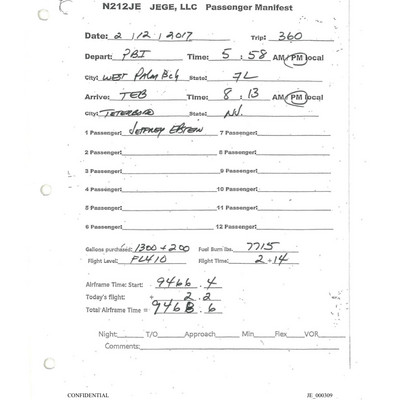 N212JE JEGE, LLC Passenger Manifest
Date: 2/12/2017 Trip: 360
Depart: PBI Time: 5:58 AM/PM local
City: WEST PALM BCH State: FL
Arrive: TEB Time: 8:13 AM/PM local
City: TETERBORO State: NJ.
1 Passenger: JEFFREY EPSTEIN 7 Passenger:
2 Passenger: 8 Passenger:
3 Passenger: 9 Passenger:
4 Passenger: 10 Passenger:
5 Passenger: 11 Passenger:
6 Passenger: 12 Passenger:
Gallons purchased: 1300 + 200 Fuel Burn lbs. 7715
Flight Level: FL410 Flight Time: 2+14
Airframe Time: Start: 9466.4
Today's flight: + 2.2
Total Airframe Time = 9468.6
Night: T/O Approach Min Flex VOR
Comments:
CONFIDENTIAL JE_000309